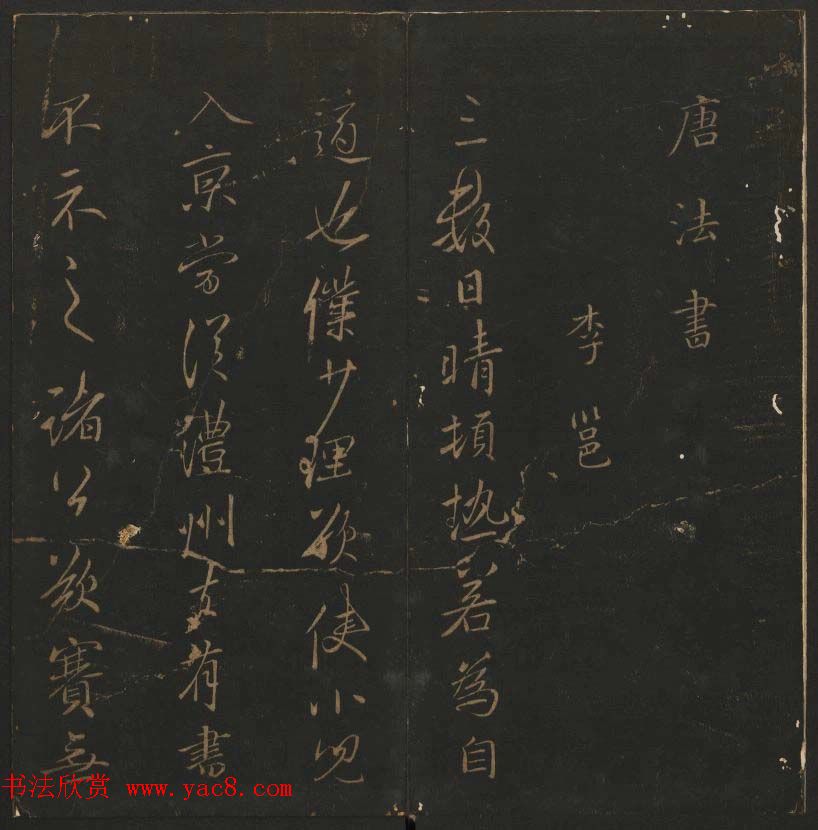 唐法書
李邕
三數日晴頓熱若為自
適也僕少理欲使小兒
入京當須澧州支有書
不示之諸公欲賽無
书法欣赏 www.yac8.com